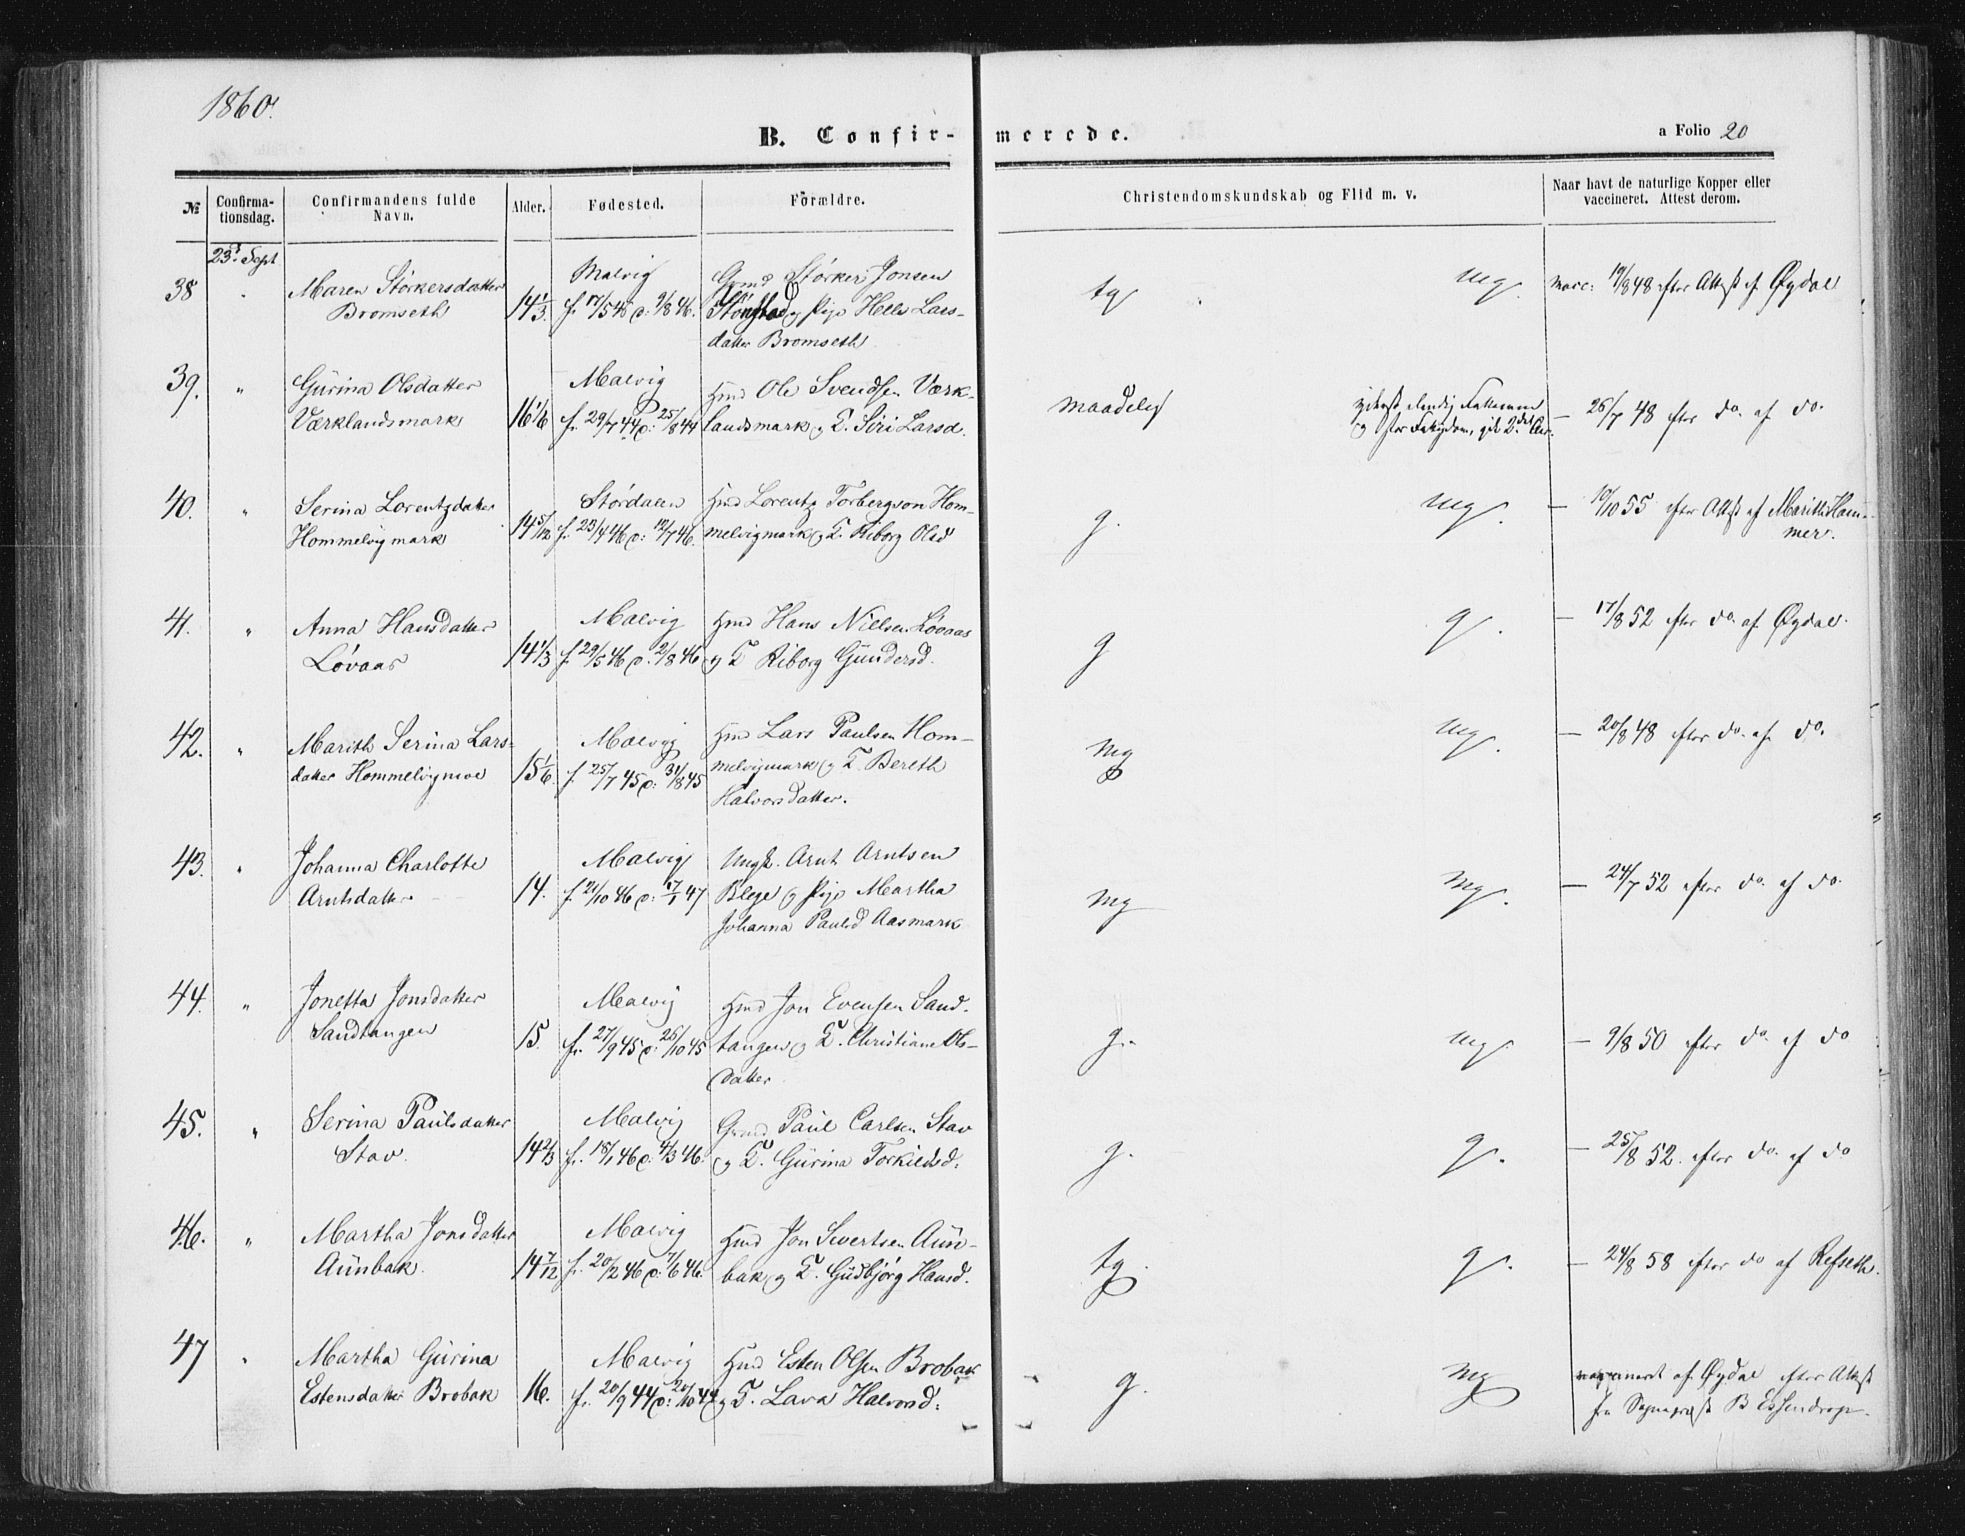 1860.
B. Confir- merede.
a Folio 20
№ Confirma-tionsdag. Confirmandens fulde Navn. Alder. Fødested. Forældre. Christendomskundskab og Flid m. v. Naar havt de naturlige Kopper eller vaccineret. Attest derom.
23d Sept
38 " Maren Størkersdatter Malvig Gmd Størker Jonsen tg mg. vacc: 19/8 48 efter Attest af Øydal
Bromseth 14 1/3. f. 17/5 46 d: 9/8 46. og Pige Lars-
datter Bromseth
39. " Gurina Olsdatter Malvig Hmd Ole Svendsen Værk- maadelig
Værklandsmark 16 1/6 f. 29/7 44 d: 25/8 44 landsmark og K. Siri Larsd. — 26/7 48 efter do. af do.
40. " Serina Lorentzdatter Størdalen Hmd Lorentz Torbergson Hom- g. mg. — 19/10 55 efter Attest af Marith Ham-
Hommelvigmark 14 5/12 f. 23/4 46 d: 12/7 46. melvigmark og K. Riborg Olsd mer.
41. " Anna Hansdatter Malvig Hmd Hans Nielsen Løvaas g g. — 17/8 52 efter do. af Øydal.
Løvaas 14 1/3 f. 29/5 46 d: 2/8 46 og K Riborg Gundersd.
42. " Marith Serina Lars- Malvig Hmd Lars Paulsen Hom- mg mg. — 20/8 48 efter do. af do.
datter Hommelvigmoe 15 1/6 f. 25/7 45 d: 31/8 45 melvigmark og K. Bereth
Halvorsdatter.
43. " Johanna Charlotte Malvig Ungk. Arnt Arntsen mg mg. — 24/7 52 efter do. af do.
Arntsdatter 14. f. 21/10 46 d: 17/1 47 Blege og Pige Martha
Johanna Paulsd Aasmark
44. " Jonetta Jonsdatter Malvig Hmd Jon Evensen Sand-
Sandtangen 15. f. 27/9 45 d: 26/10 45 tangen og K. Christiane Ols- g. mg. — 9/8 50 efter do. af do
datter
45. " Serina Paulsdatter Malvig Gmd Paul Carlsen Stav g. g. — 25/8 52. efter do. af do
Stav. 14 2/3 f. 18/1 46 d: 4/3 46. og K. Gurina Torkildsd:
46. " Martha Jonsdatter Malvig Hmd Jon Sivertsen Aun- tg g. — 24/8 58 efter do af Refseth.
Aunbak. 14 7/12 f. 20/2 46 d: 7/6 46. bak og K. Gudbjørg Hansd.
47 " Martha Gurina Malvig Hmd Esten Olsen Brobak g. mg vaccineret af Øydal efter Attest
Estensdatter Brobak 16. f. 20/9 44 d: 20/10 44 og K. Lava Halvorsd: fra Sognepræst B Essendrop.